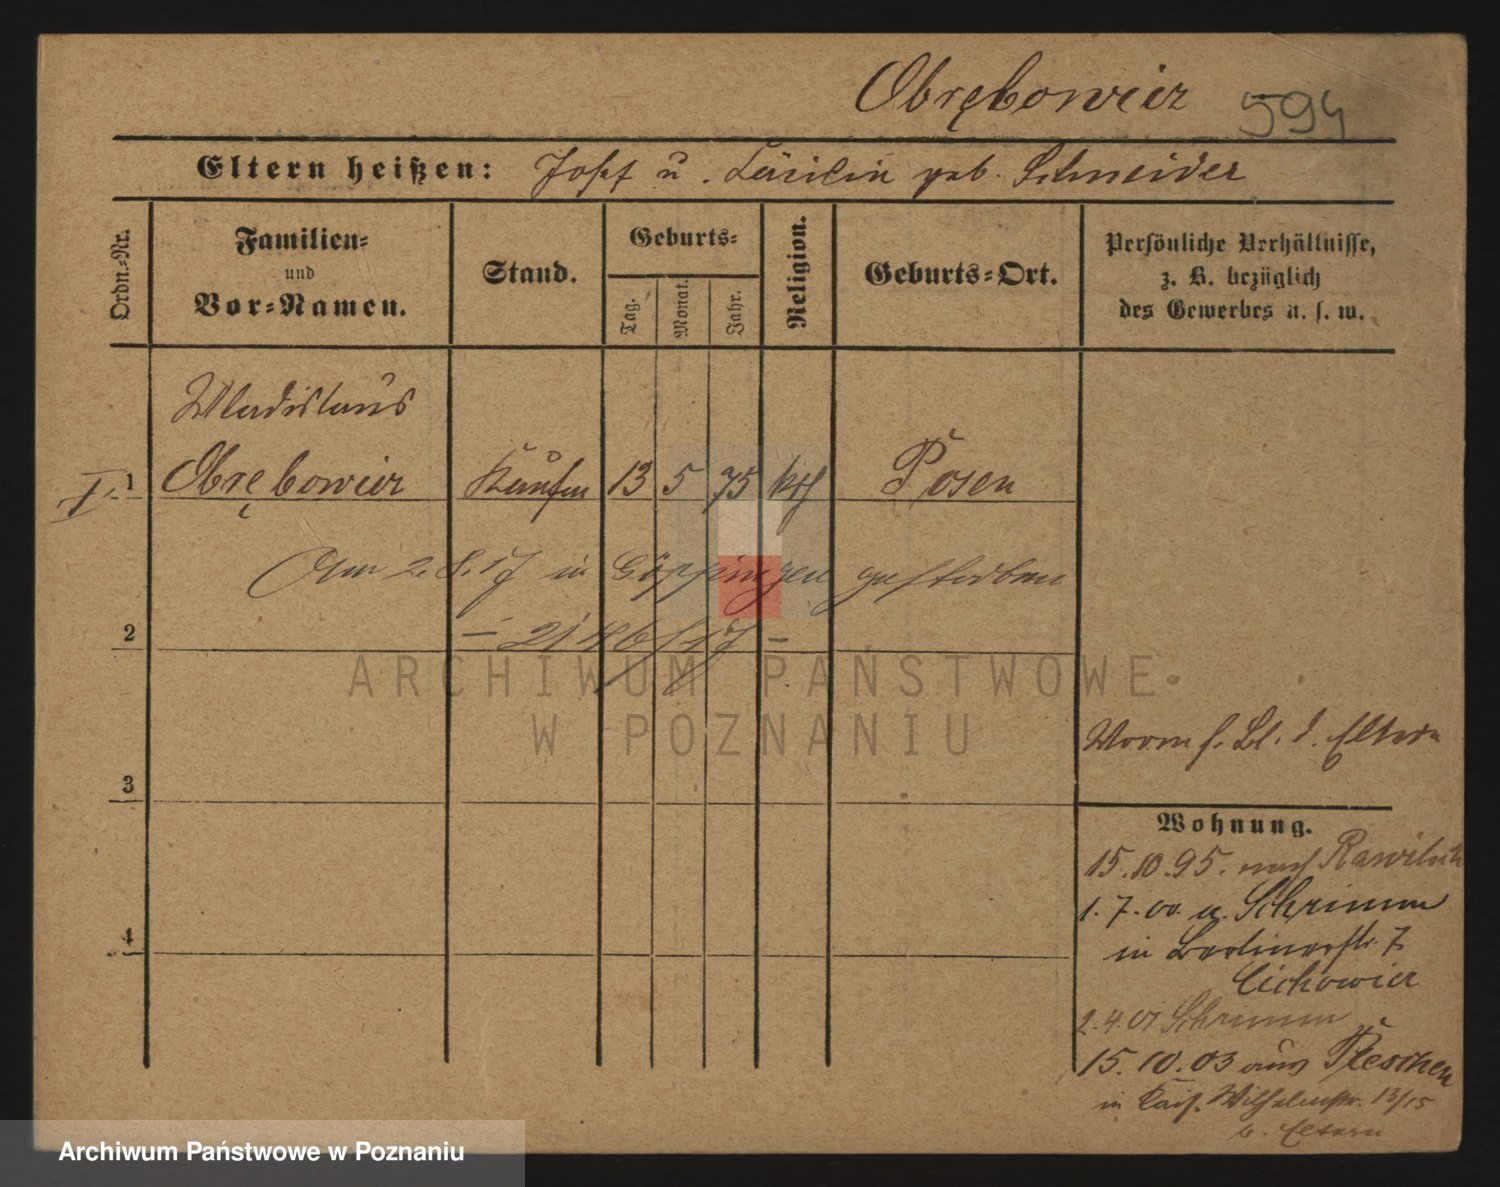 Obrębowicz 594
Eltern heißen: Josef u. Cäcilia geb. Schneider
Ordn.-Nr.
Familien-
und
Vor-Namen.
Stand.
Geburts-
Tag.
Monat.
Jahr.
Religion.
Geburts-Ort.
Persönliche Verhältnisse,
z. B. bezüglich
des Gewerbes u. s. w.
Wladislaus
I. 1 Obrębowicz Kaufm 13 5 75 kth Posen
Am 2.8.17 in Göppingen gestorben
2
ARCHIWUM PAŃSTWOWE
W POZNANIU
Worm s. Bl. d. Eltern
3
Wohnung.
15.10.95. nach Rawitsch
1.7.00 a. Schrimm
in Berlinerstr. 7
Cichowicz
4
2.4.01 Schrimm
15.10.03 aus Pleschen
in Kais. Wilhelmstr. 13/15
b. Eltern
Archiwum Państwowe w Poznaniu